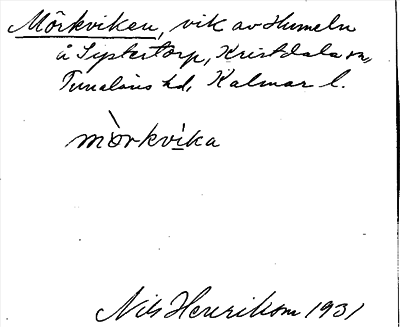 Mörkviken, vik av Humeln
å Systertorp, Kristdala sn,
Tunaläns hd, Kalmar l.
mörkvika
Nils Henrikson 1931